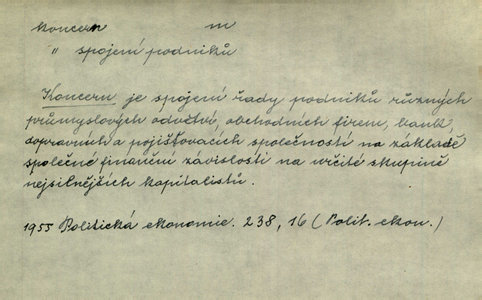 koncern m
" spojení podniků
Koncern je spojení řady podniků různých
průmyslových odvětví, obchodních firem, bank
dopravních a pojišťovacích společností na základě
společné finanční závislosti na určité skupině
nejsilnějších kapitalistů.
1955 Politická ekonomie. 238, 16 (Polit. ekon.)